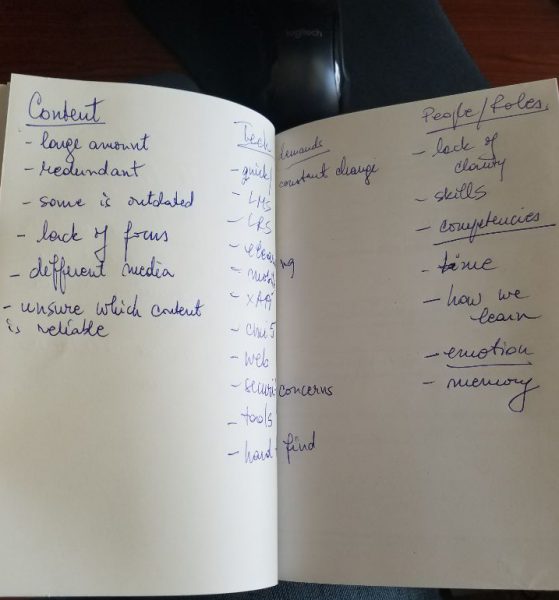 logitech
Content
- large amount
- redundant
- some is outdated
- lack of focus
- different media
- unsure which content
is reliable
Tech demands
- quick/ constant change
- LMS
- LRS
- elearning
- mobile
- xAPI
- cmi5
- web
- security concerns
- tools
- hard find
People/Roles
- lack of
clarity
- skills
- competencies
- time
- how we
learn
- emotion
- memory